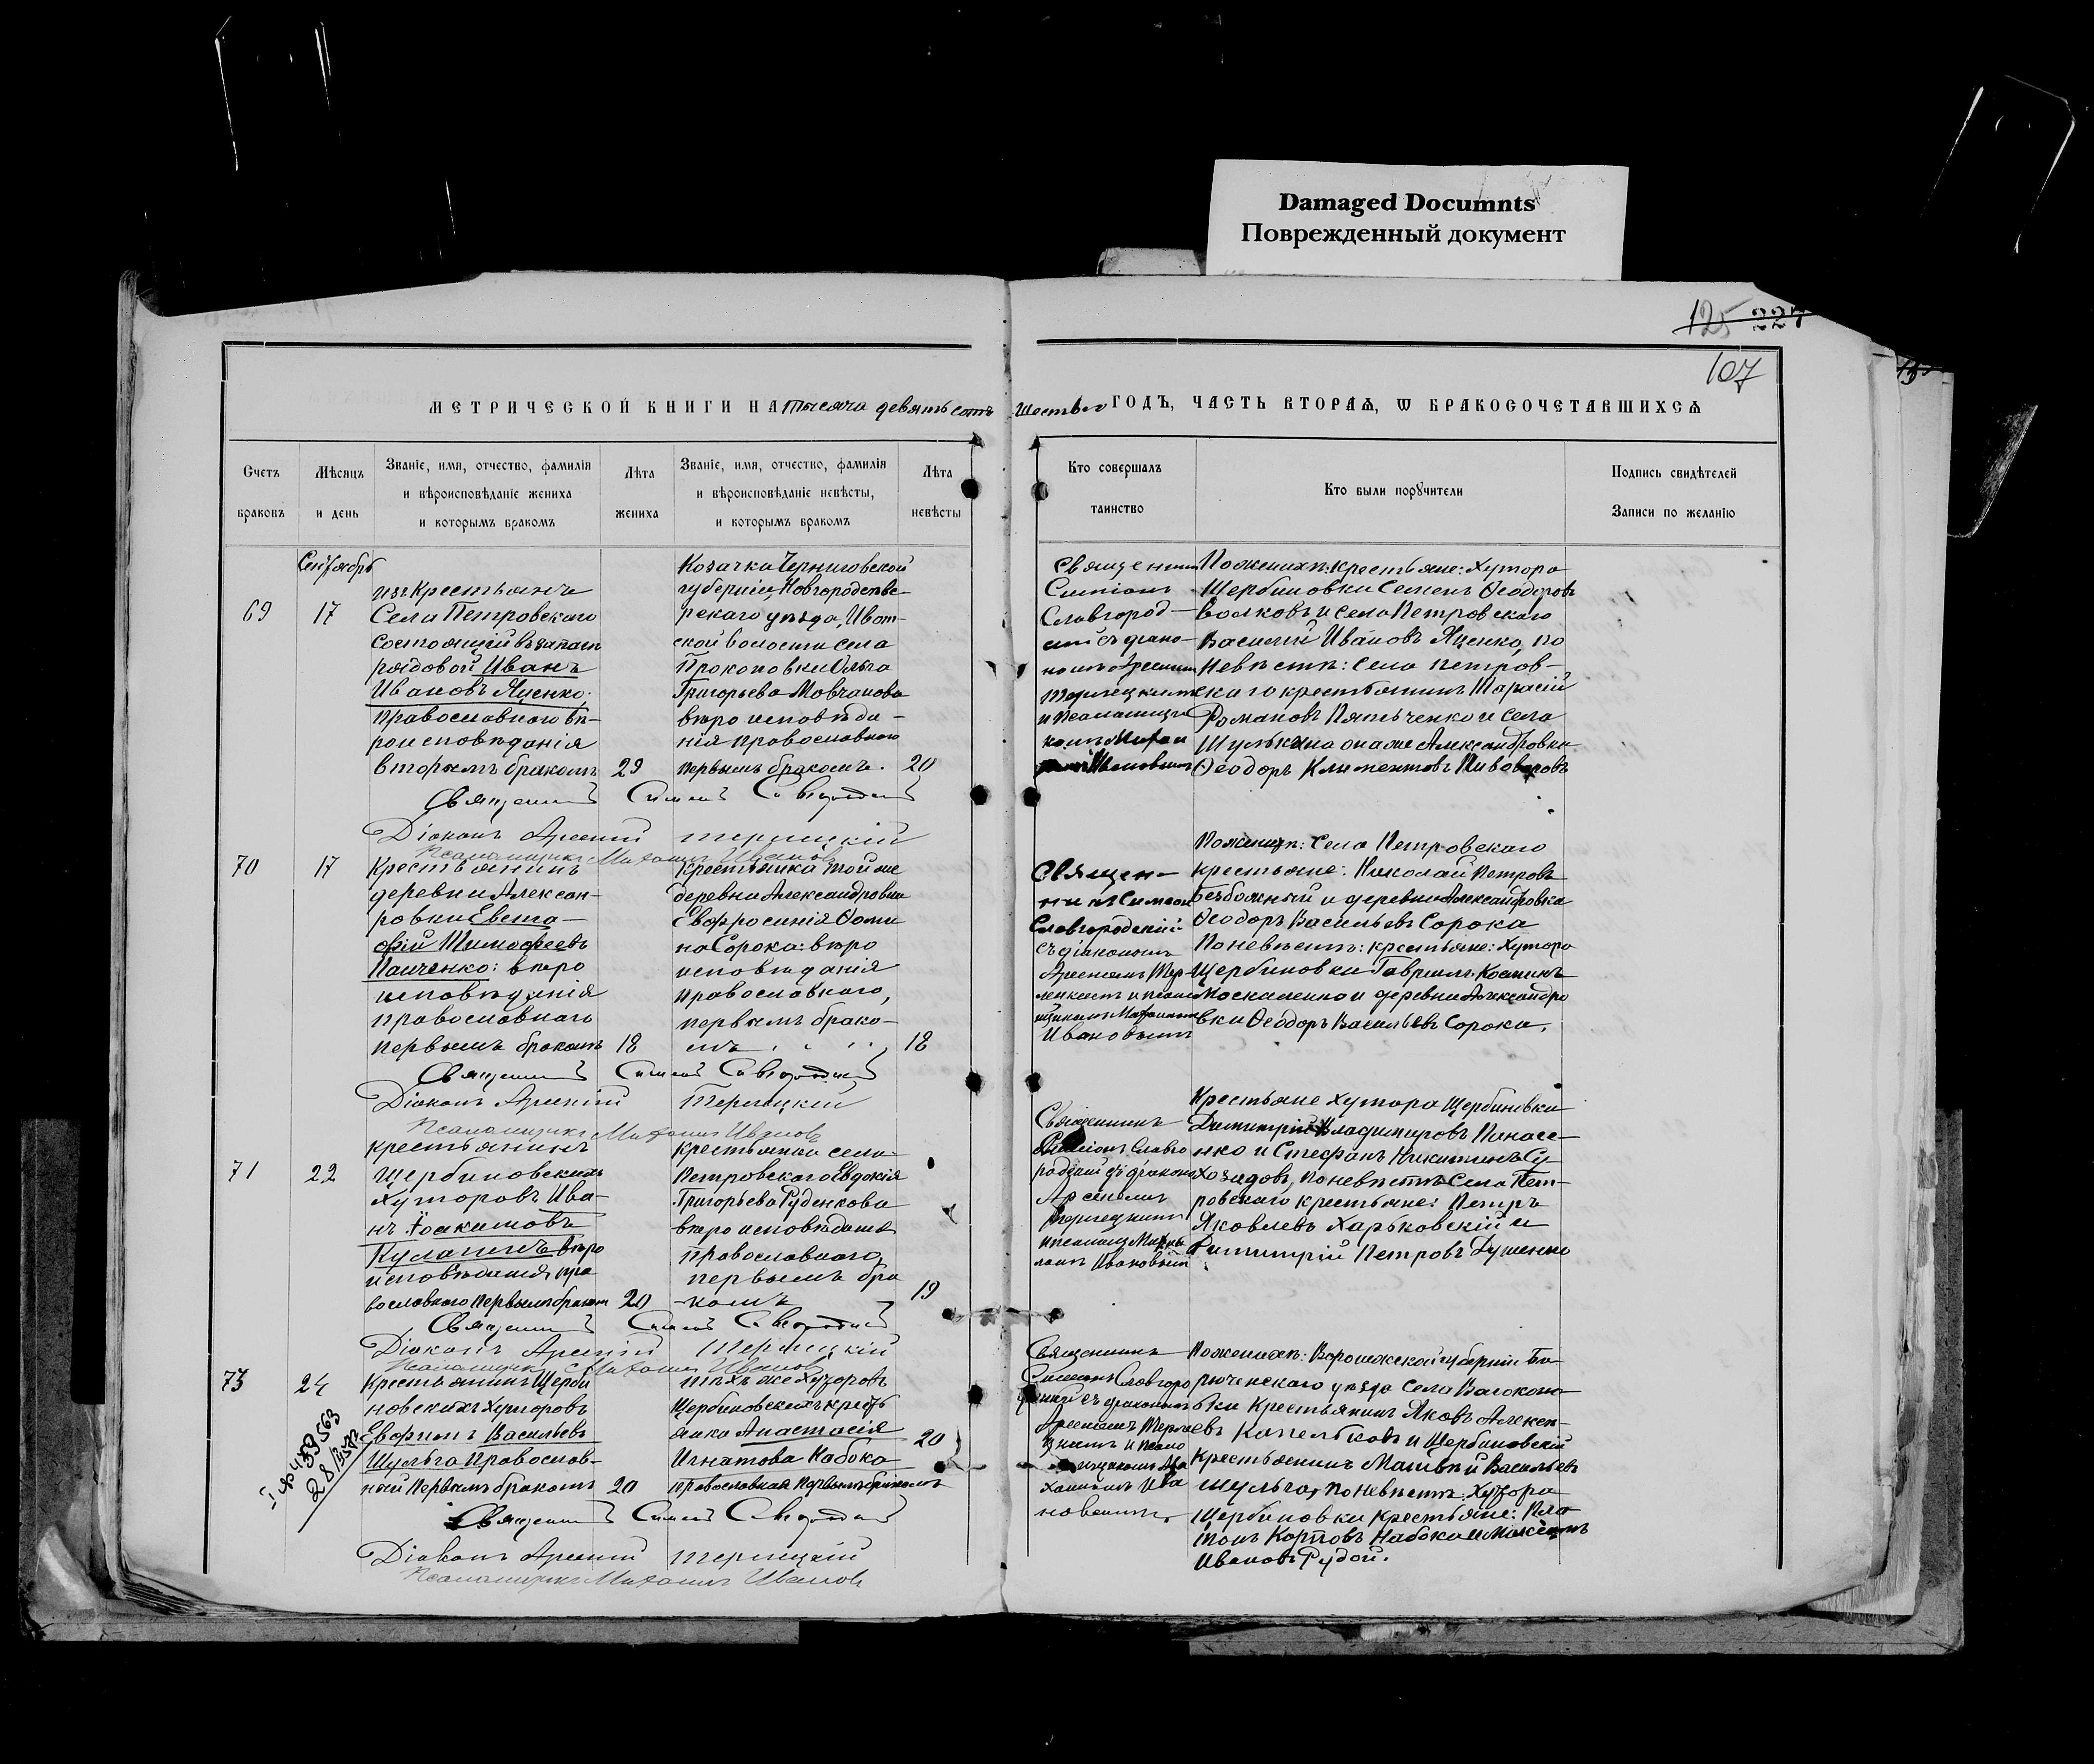 Damaged Documnts
Поврежденный документ
125 227
107
МЕТРИЧЕСКОЙ КНИГИ НА тысяча девятьсотъ шестый ГОДЪ, ЧАСТЬ ВТОРАЯ, Ѡ БРАКОСОЧЕТАВШИХСЯ
Счетъ браковъ
Мѣсяцъ и день
Званіе, имя, отчество, фамилія
и вѣроисповѣданіе жениха
и которымъ бракомъ
Лѣта жениха
Званіе, имя, отчество, фамилія
и вѣроисповѣданіе невѣсты,
и которымъ бракомъ
Лѣта невѣсты
Кто совершалъ
таинство
Кто были порꙋчители
Подпись свидѣтелей
Записи по желанію
Сентябрь
69
17
изъ Крестьянъ
Села Петровскаго
состоящій въ запасѣ
рядовой Иванъ
Ивановъ Яценко,
православнаго вѣ-
роисповѣданія
вторымъ бракомъ
29
Козачка Черниговской
губерніи, Новгородсѣве-
рскаго уѣзда, Ивот-
ской волости села
Прокоповки Ольга
Григорьева Мовчанова
вѣроисповѣда-
нія православнаго
первымъ бракомъ.
20
Священникъ
Симіонъ
Славгород-
скій съ діако-
номъ Арсеніемъ
Терлецкимъ
и псаломщи
комъ
Ивановымъ
По женихѣ: крестьяне: Хутора
Щербиновки Семенъ Ѳеодоровъ
Волковъ и села Петровскаго
Василій Ивановъ Яценко, по
Невѣстѣ: села Петров-
скаго крестьянинъ Тарасій
Романовъ Пятьченко и села
Шулькина она же Александровка
Ѳеодоръ Климентовъ Пивоваровъ
Священникъ Симеонъ Славгородскій
Діаконъ Арсеній Терлецкій
Псаломщикъ Митрофанъ Ивановъ
70
17
Крестьянинъ
деревни Алексан-
ровки Евста-
фій Тимофеевъ
Панченко: вѣро
исповѣданія
православнаго
первымъ бракомъ
18
Крестьянка той же
деревни Александровки
Евфросинія Ѳоми
на Сорока: вѣро
исповѣданія
православнаго,
первымъ брако-
мъ
18
Священ-
никъ Симеонъ
Славгородскій
съ діакономъ
Арсеніемъ Тер-
лецкимъ и псалом
щикомъ
Ивановымъ
По женихѣ: Села Петровскаго
крестьяне: Николай Петровъ
Безбожный и деревни Александровка
Ѳеодоръ Васильевъ Сорока
По невѣстѣ: крестьяне: Хутора
Щербиновки Гавріилъ Косминъ
Москаленко и деревни Александро
вки Ѳеодоръ Васильевъ Сорока.
Священникъ Симеонъ Славгородскій
Діаконъ Арсеній Терлецкій
Псаломщикъ Ивановъ
71
22
крестьянинъ
Щербиновскихъ
Хуторовъ Ива-
нъ Іоакимовъ
Кулагинъ вѣро
исповѣданія пра
вославнаго первымъ бракомъ
20
крестьянка села
Петровскаго Евдокія
Григорьева Руденкова
вѣроисповѣданія
православнаго,
первымъ бра
-комъ
19
Священникъ
Симіонъ Славго
родскій съ діакономъ
Арсеніемъ
Терлецкимъ
и псаломщ
Ивановымъ
Крестьяне хутора Щербиновки
Димитрій Владимировъ Панасе-
нко и Стефанъ Никитинъ Су
хозадовъ, по невѣстѣ Села Пет-
ровскаго крестьяне: Петръ
Яковлевъ Харьковскій и
Димитрій Петровъ Душенко
Священникъ Симеонъ Славгородскій
Діаконъ Арсеній Терлецкій
Псаломщикъ Ивановъ
73
24
Крестьянинъ Щерби
новскихъ Хуторовъ
Евфимъ Васильевъ
Шульга Православ-
ный Первымъ бракомъ
20
тѣхъ же Хуторовъ
Щербиновскихъ кресть
янка Анастасія
Игнатова Набока
православная первымъ бракомъ
20
Священникъ
Симеонъ Славгоро
дскій съ діакономъ
Арсеніемъ Терле
цкимъ и псало
мщикомъ
Ива
новымъ.
По женихѣ: Воронежской губерніи Би
рюченскаго уѣзда села
Крестьянинъ Яковъ Алексе-
евъ и Щербиновскій
крестьянинъ Матвѣй Васильевъ
Шульга, по невѣстѣ: Хутора
Щербиновки крестьяне: Пла
тонъ Карповъ Набока и Максимъ
Ивановъ Рудой.
Священникъ Симеонъ Славгородскій
Діаконъ Арсеній Терлецкій
Псаломщикъ Ивановъ